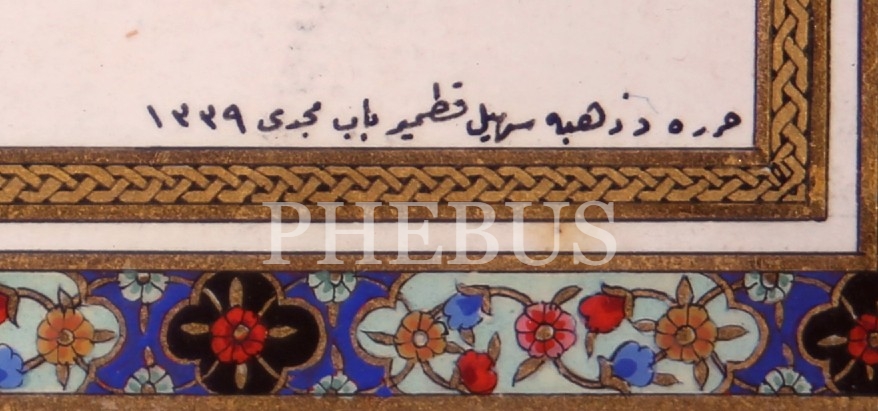 حرره و ذهبه سهیل قطمیر باب مجدی ١٣٣٩
PHEBUS